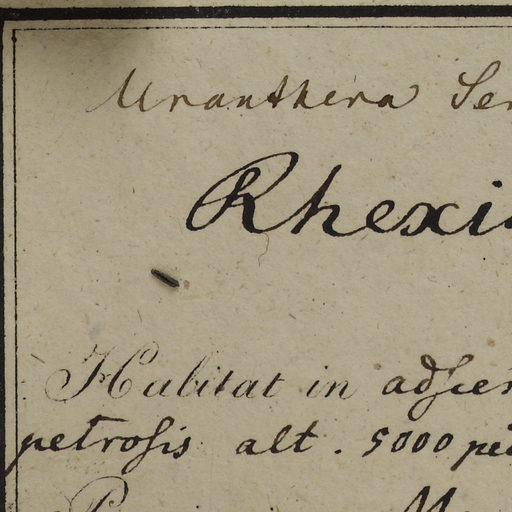 Uranthera Ser
Rhexia
Habitat in adscen
petrosis alt. 5000 ped